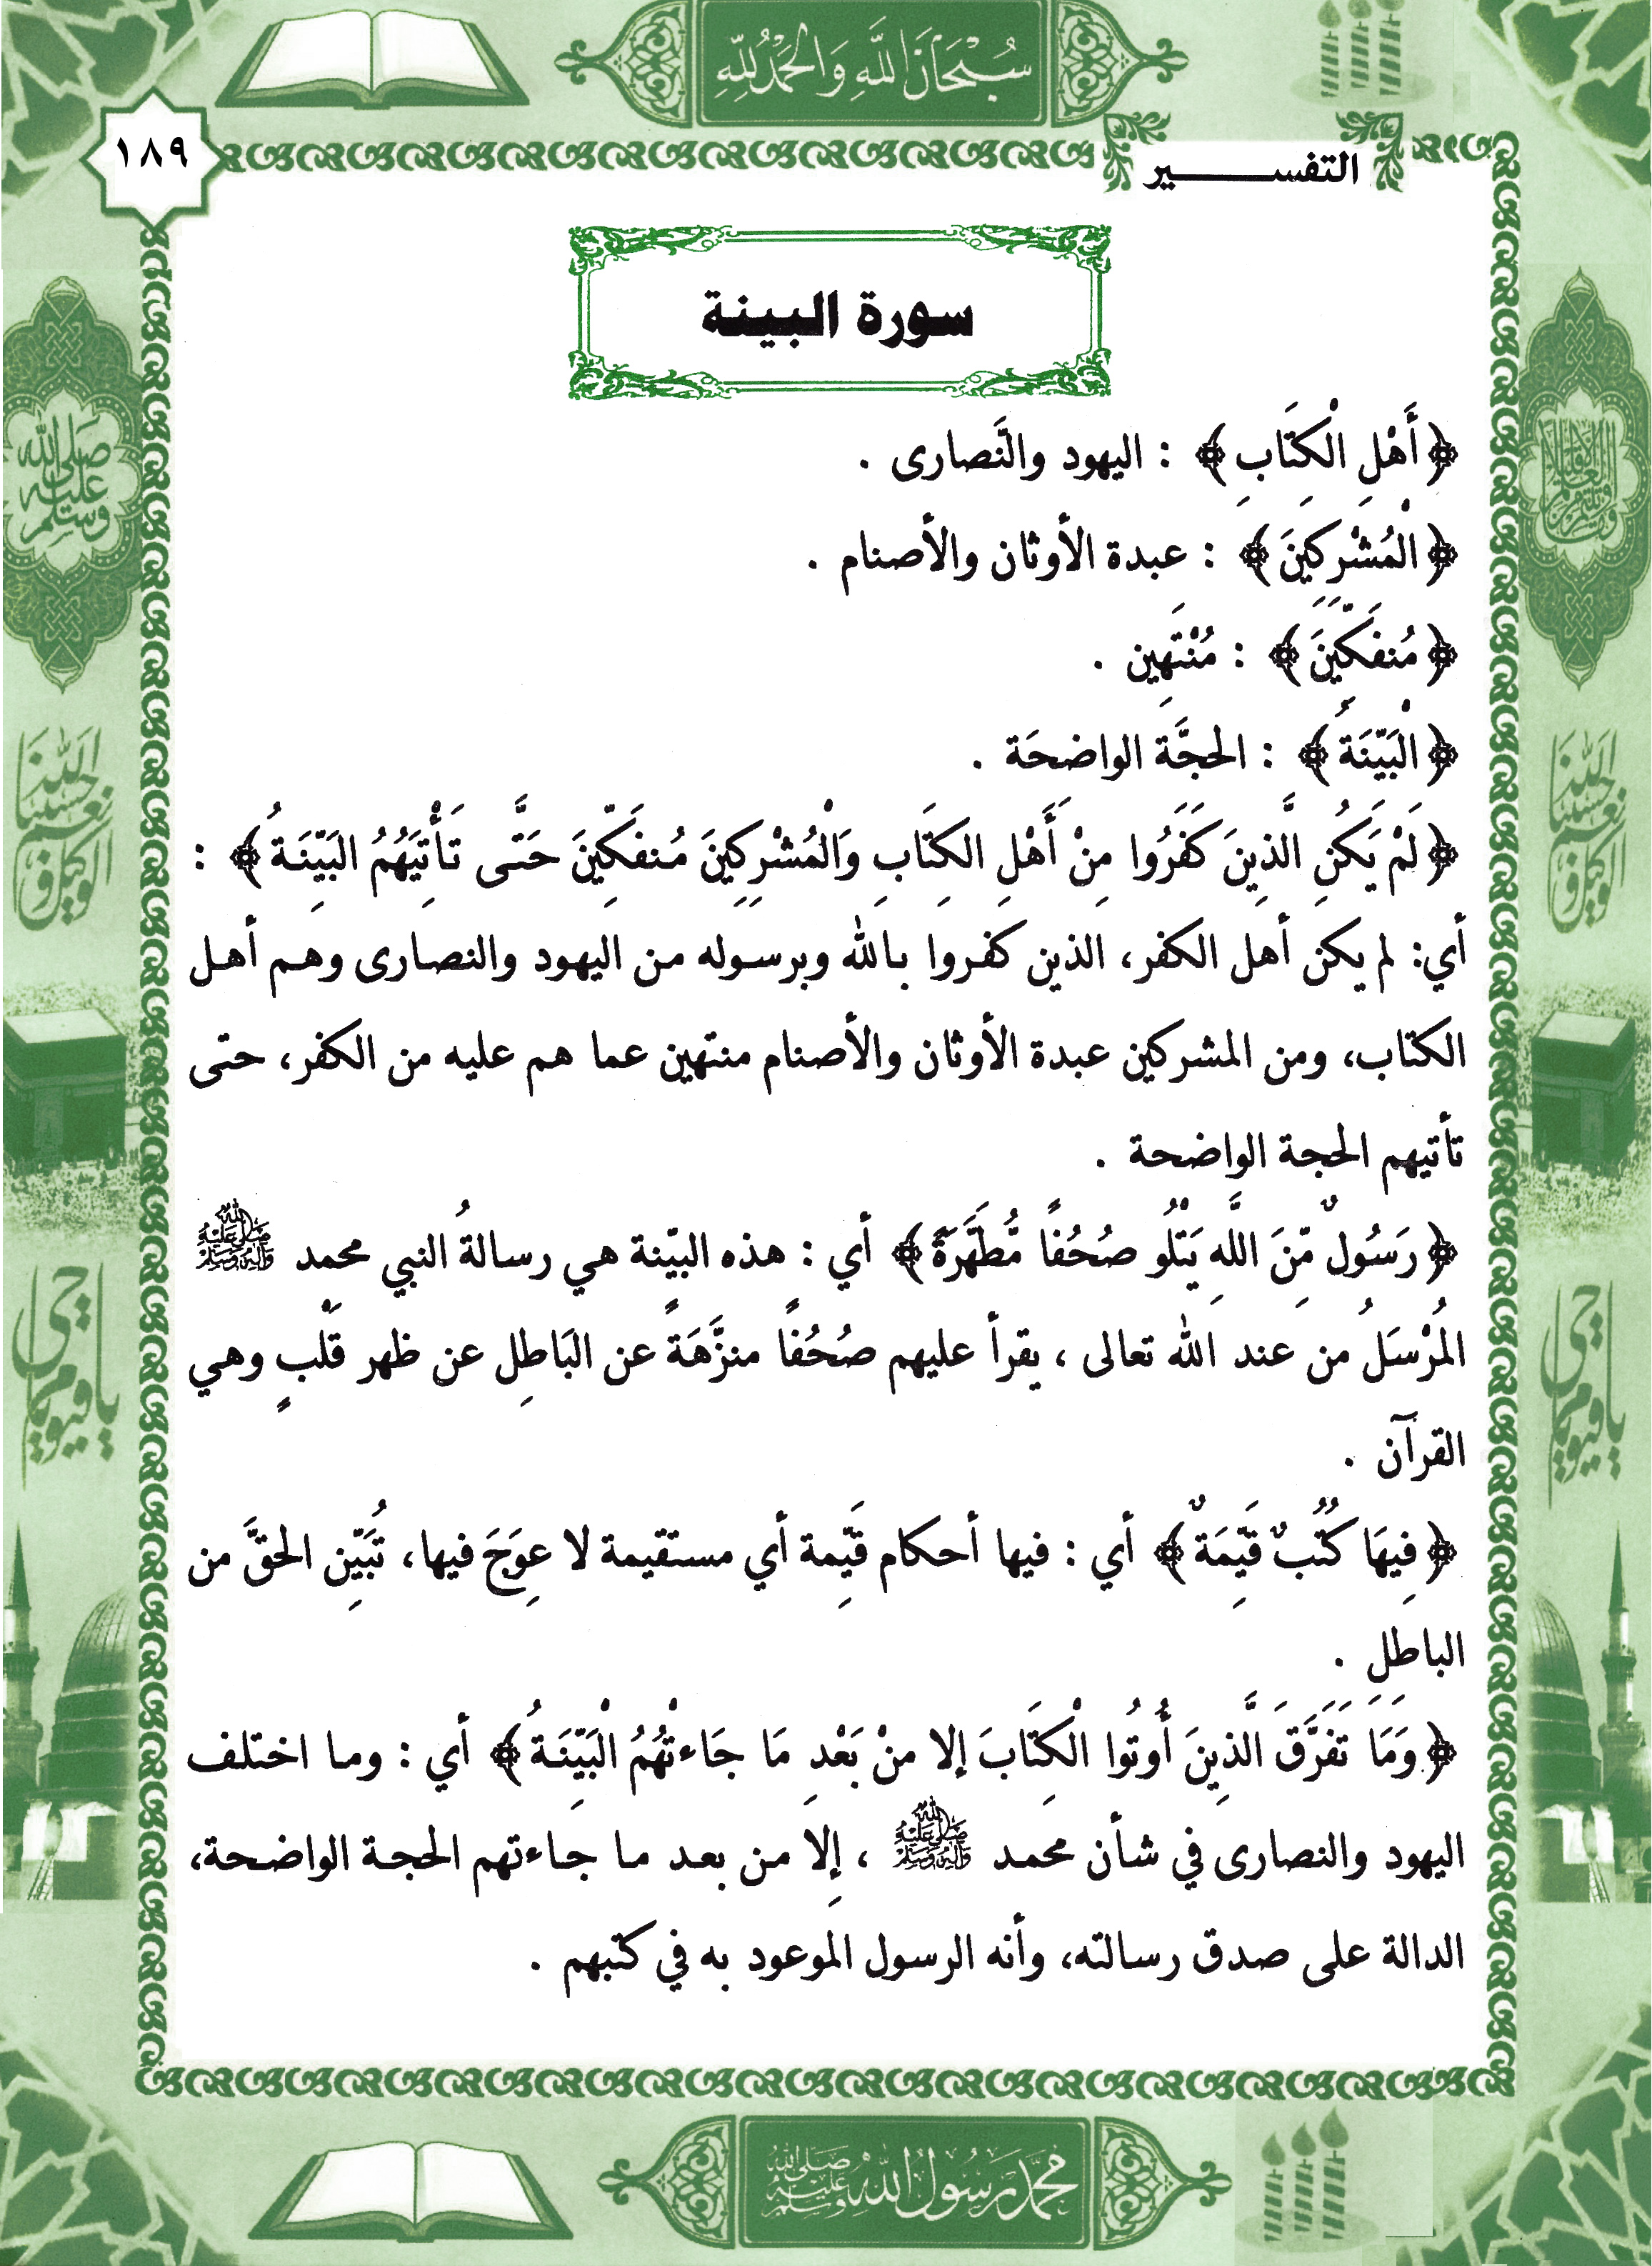 سُبْحَانَ اللَّهِ وَالْحَمْدُ لِلَّهِ
١٨٩
التفســـــــير
سورة البينة
﴿أَهْلِ الْكِتَابِ﴾ : اليهود والنَّصارى .
﴿الْمُشْرِكِينَ﴾ : عبدة الأوثان والأصنام .
﴿مُنفَكِّينَ﴾ : مُنْتَهِين .
﴿الْبَيِّنَةُ﴾ : الحجَّة الواضحَة .
﴿لَمْ يَكُنِ الَّذِينَ كَفَرُوا مِنْ أَهْلِ الكِتَابِ وَالْمُشْرِكِينَ مُنفَكِّينَ حَتَّى تَأْتِيَهُمُ البَيِّنَةُ﴾ :
أي: لم يكن أهل الكفر، الذين كفروا بالله وبرسوله من اليهود والنصارى وهم أهل
الكتاب، ومن المشركين عبدة الأوثان والأصنام منتهين عما هم عليه من الكفر، حتى
تأتيهم الحجة الواضحة .
﴿رَسُولٌ مِّنَ اللَّهِ يَتْلُو صُحُفًا مُّطَهَّرَةً﴾ أي : هذه البيّنة هي رسالةُ النبي محمد ﷺ
المُرْسَلُ من عند الله تعالى ، يقرأ عليهم صُحُفًا منزَّهَةً عن البَاطِل عن ظهر قَلْبٍ وهي
القرآن .
﴿فِيهَا كُتُبٌ قَيِّمَةٌ﴾ أي : فيها أحكام قَيِّمة أي مستقيمة لا عِوَجَ فيها، تُبَيِّن الحقَّ من
الباطلِ .
﴿وَمَا تَفَرَّقَ الَّذِينَ أُوتُوا الْكِتَابَ إلا منْ بَعْدِ مَا جَاءتْهُمُ الْبَيِّنَةُ﴾ أي : وما اختلف
اليهود والنصارى في شأن محمد ﷺ ، إِلا من بعد ما جاءتهم الحجة الواضحة،
الدالة على صدق رسالته، وأنه الرسول الموعود به في كتبهم .
صلى الله عليه وسلم
حسبنا الله ونعم الوكيل
حسبنا الله ونعم الوكيل
يا حي يا قيوم
يا حي يا قيوم
محمد رسول الله صلى الله عليه وسلم